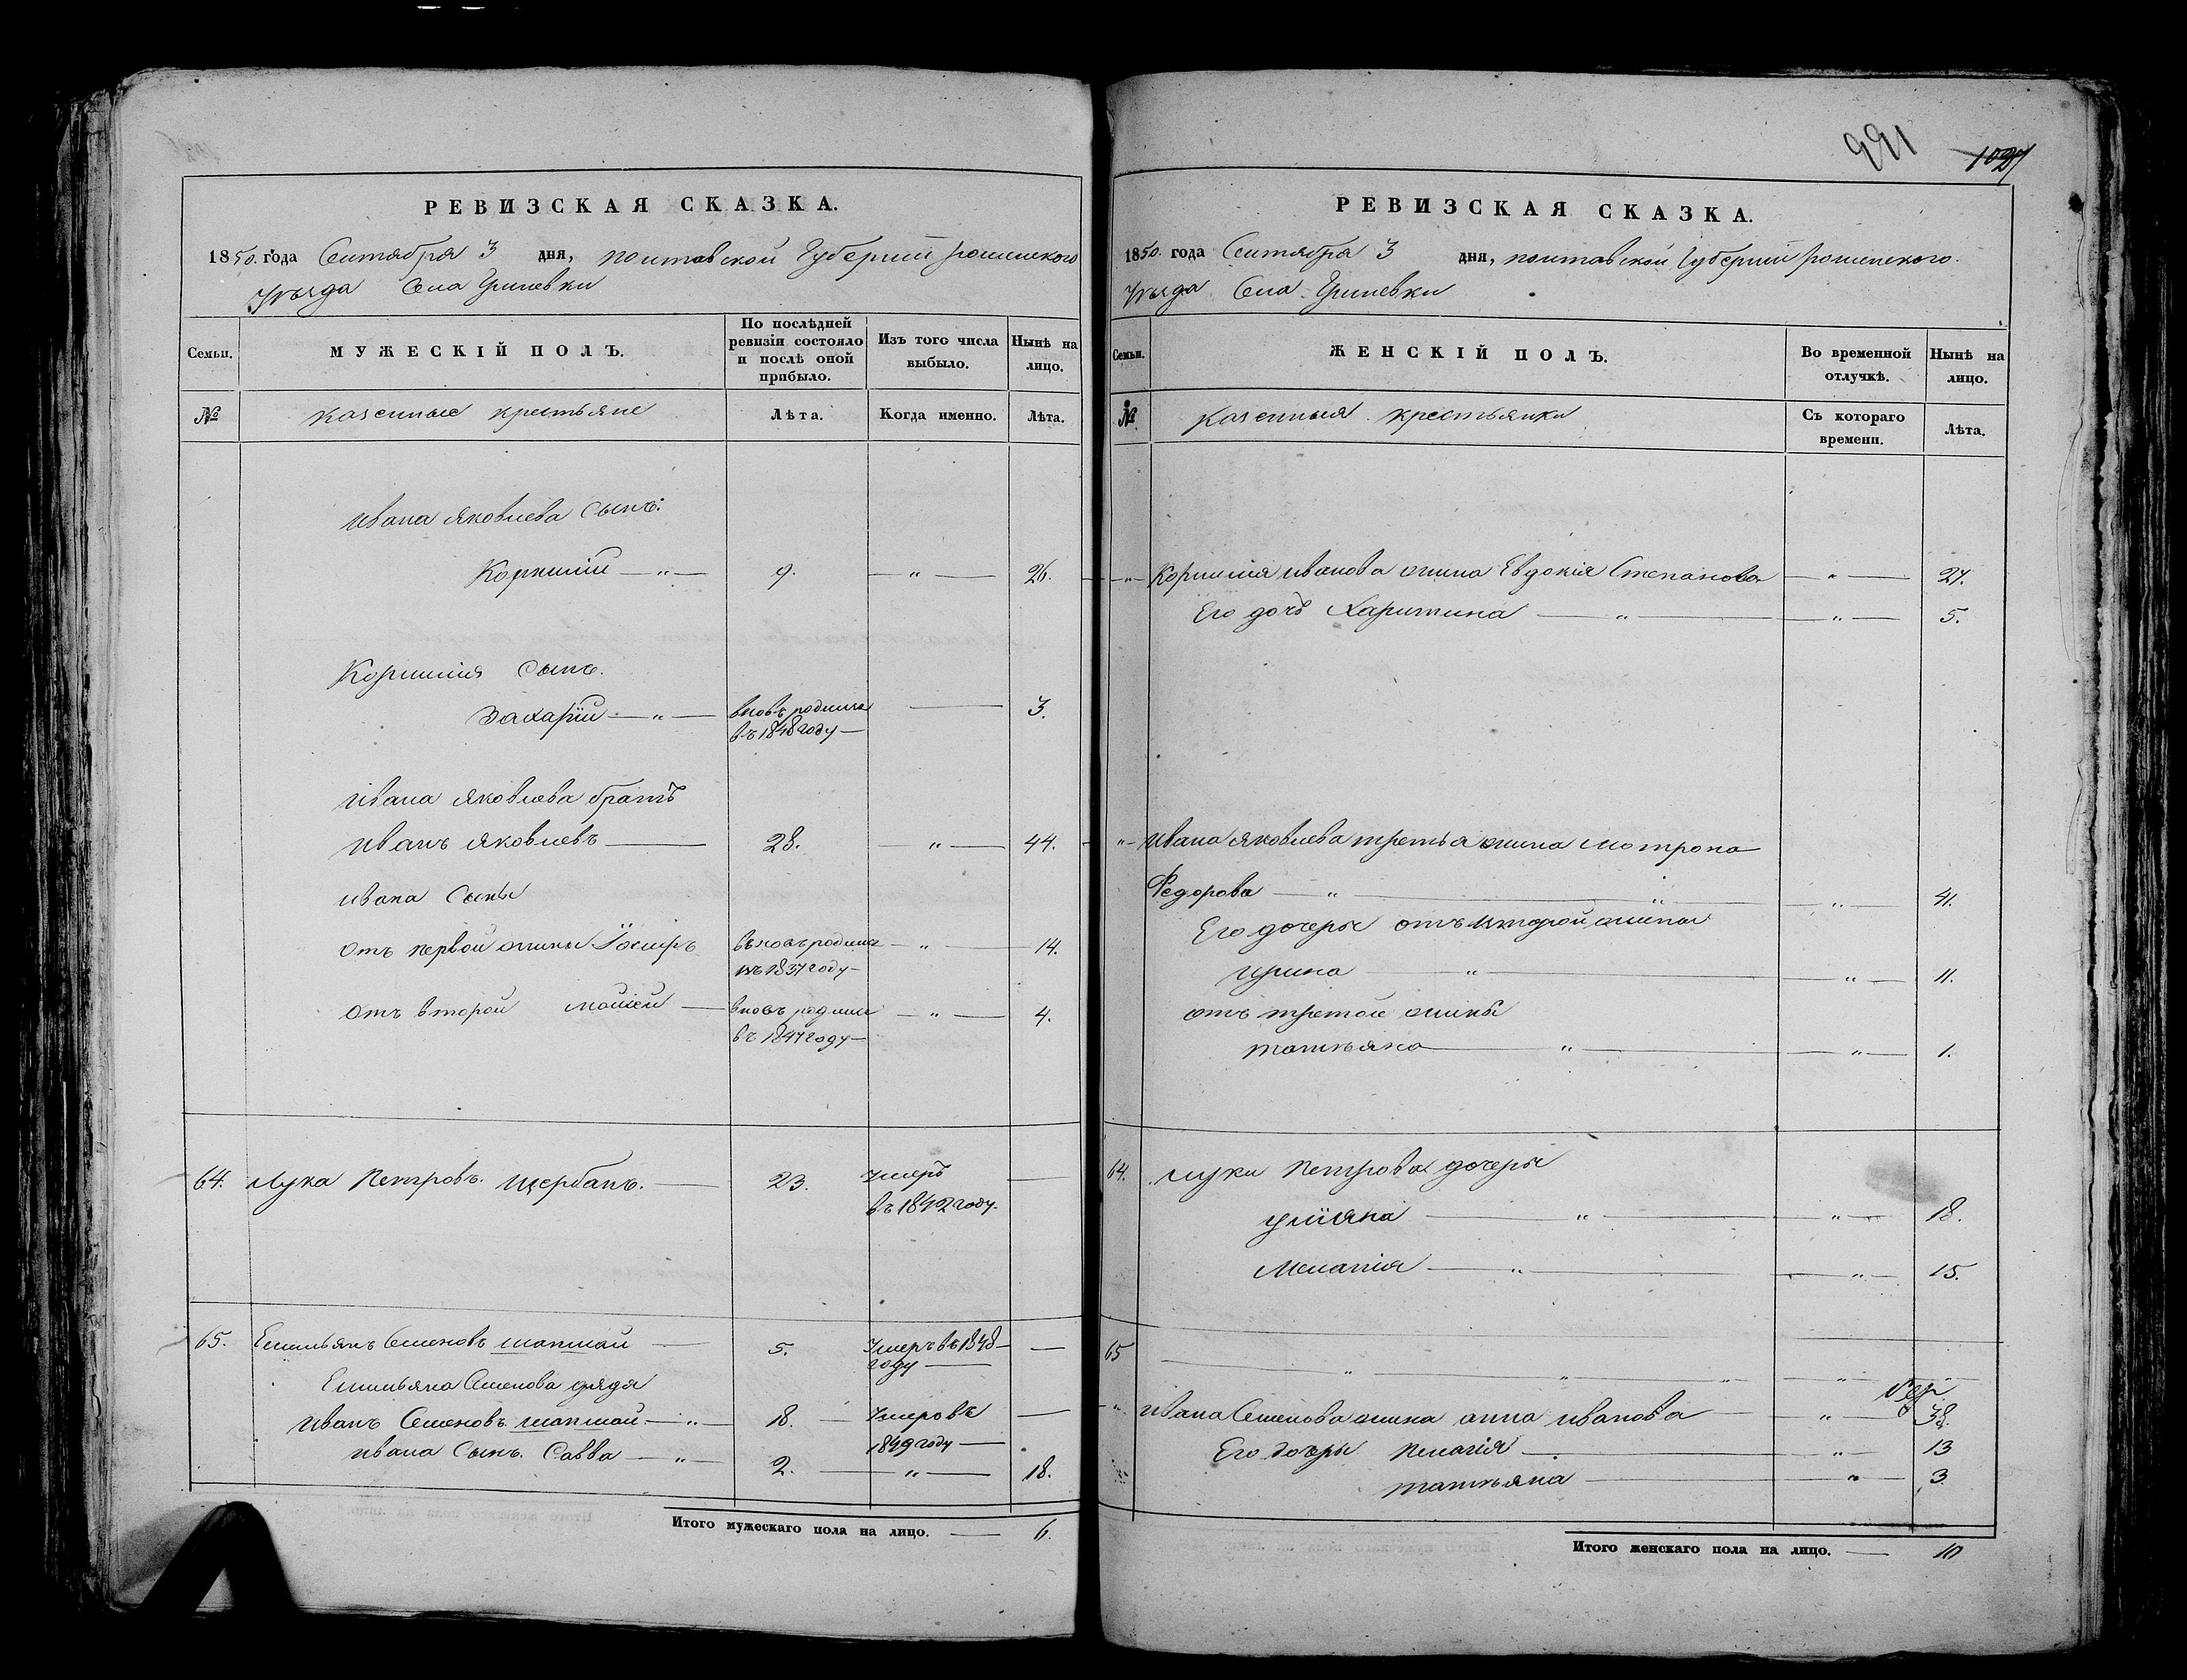 РЕВИЗСКАЯ СКАЗКА.
1850. года Сентября 3 дня, полтавской Губернии роменского
Уѣзда Села Гриневки
Семьи.
МУЖЕСКІЙ ПОЛЪ.
По послѣдней ревизіи состояло и послѣ оной прибыло.
Изъ того числа выбыло.
Нынѣ на лицо.
№
казенные крестьяне
Лѣта.
Когда именно.
Лѣта.
Ивана Яковлева сынъ.
Корнилий — „ — 9. — „ — 26.
Корнилия сынъ.
Захарій — „ — вновь родился — 3.
въ 1848 году —
Ивана Яковлева братъ
Иванъ Яковлевъ — 28. „ — 44.
Ивана сыны
отъ первой жины Іосипъ вновь родился — „ — 14.
въ 1837 году —
отъ второй Мойсей — вновь родился — „ — 4.
въ 1847 году —
64. Лука Петровъ. Щербань. — 23. Умеръ —
въ 1842 году.
65. Емельянъ Семеновъ Шаптай — 5. Умеръ въ 1848 —
году —
Емельяна Семенова дядя
Иванъ Семеновъ — „ — 18. — Умеръ въ —
1849 году —
Ивана сынъ. Савва — „ — 2. — „ — 18.
Итого мужескаго пола на лицо. — 6.
991
РЕВИЗСКАЯ СКАЗКА.
1850. года Сентября 3 дня, полтавской Губернии роменского.
Уѣзда Села Гриневки
Семьи.
ЖЕНСКІЙ ПОЛЪ.
Во временной отлучкѣ.
Нынѣ на лицо.
№
казенныя крестьянки
Съ котораго времени.
Лѣта.
„ Корнилия Иванова жина Евдокія Степанова — „ — 27.
Его дочь Харитина — „ — „ — 5.
„ Ивана Яковлева третья жина Мотрона
Федорова — „ — „ — „ — 41.
Его дочеры отъ второй жины
Ирина — „ — „ — 11.
отъ третой жины
Татьяна — „ — „ — 1.
64. Луки Петрова дочеры
Улияна — „ — „ — 18.
Мелания — „ — „ — 15.
65 — „ — „ — „ — „ —
„ Ивана Семенова жина Анна Иванова — „ — 38.
Его дочеры Пелагія — „ — 13
Татьяна — „ — 3.
Итого женскаго пола на лицо. — 10